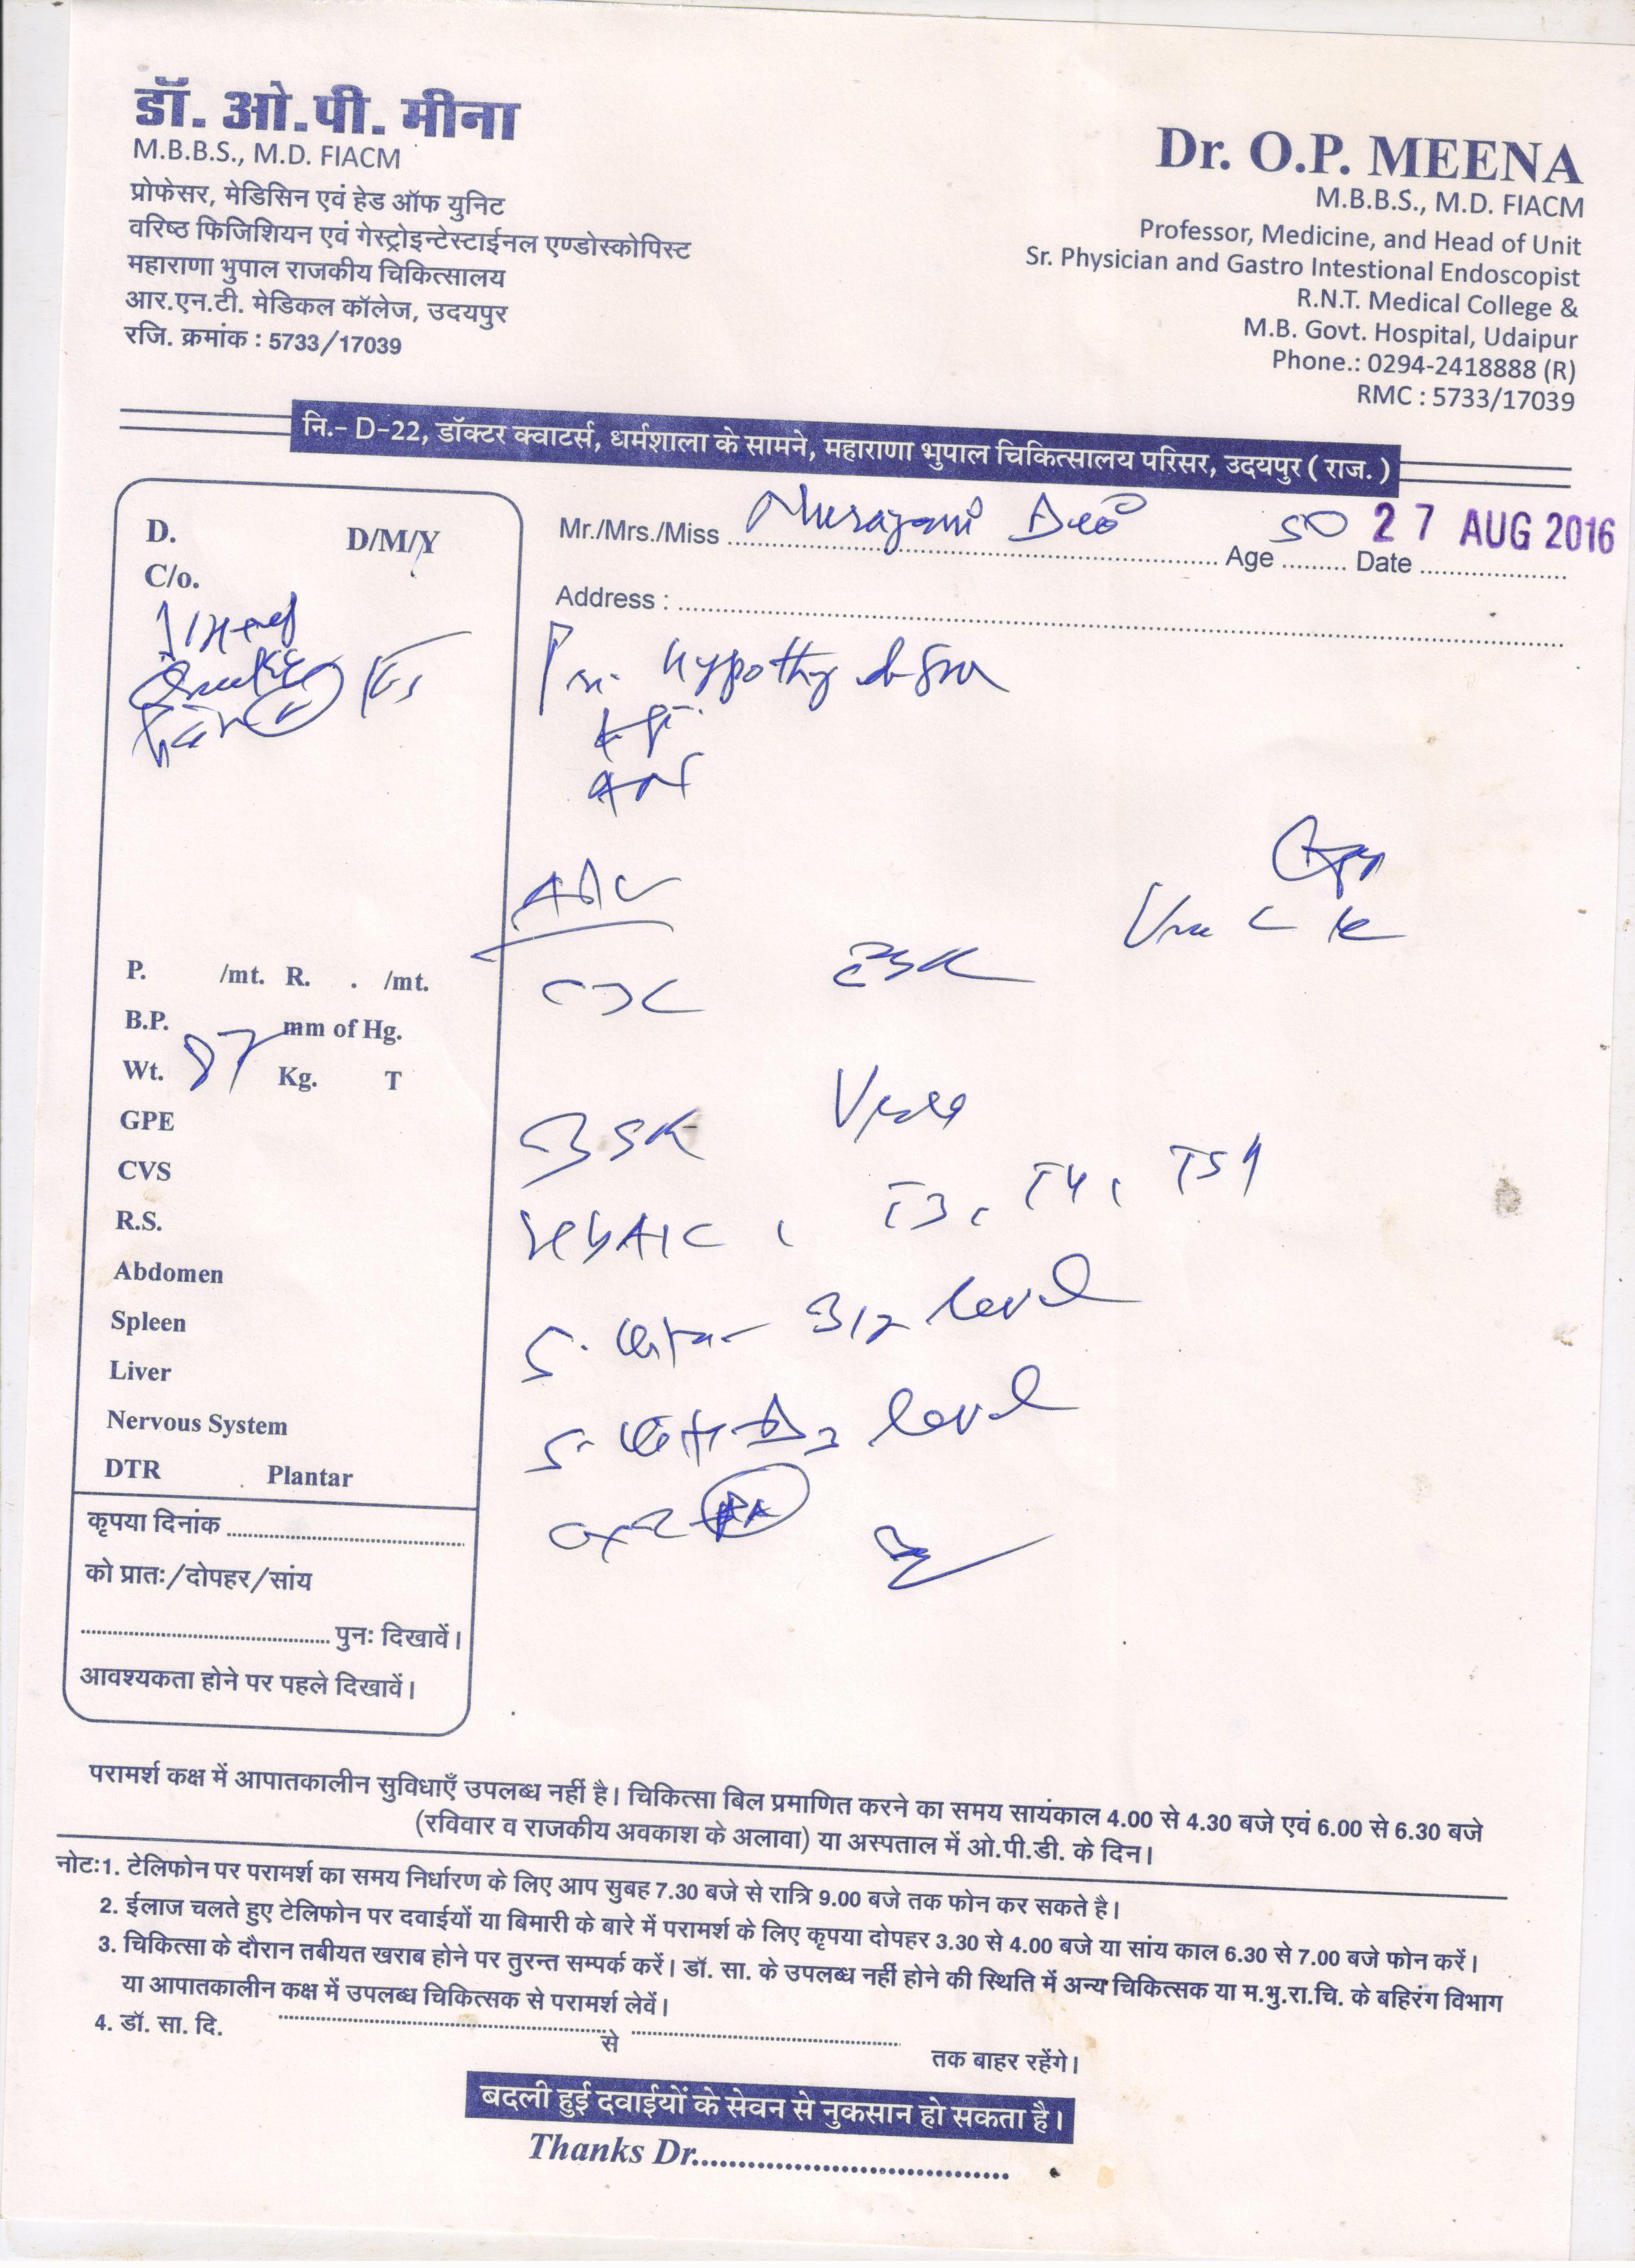 डॉ. ओ.पी. मीना
M.B.B.S., M.D. FIACM
प्रोफेसर, मेडिसिन एवं हेड ऑफ युनिट
वरिष्ठ फिजिशियन एवं गेस्ट्रोइन्टेस्टाईनल एण्डोस्कोपिस्ट
महाराणा भुपाल राजकीय चिकित्सालय
आर.एन.टी. मेडिकल कॉलेज, उदयपुर
रजि. क्रमांक : 5733/17039
Dr. O.P. MEENA
M.B.B.S., M.D. FIACM
Professor, Medicine, and Head of Unit
Sr. Physician and Gastro Intestional Endoscopist
R.N.T. Medical College &
M.B. Govt. Hospital, Udaipur
Phone.: 0294-2418888 (R)
RMC : 5733/17039
नि.- D-22, डॉक्टर क्वाटर्स, धर्मशाला के सामने, महाराणा भुपाल चिकित्सालय परिसर, उदयपुर ( राज. )
Mr./Mrs./Miss Age 50 Date 27 AUG 2016
Address :
D. D/M/Y
C/o.
P. /mt. R. . /mt.
B.P. mm of Hg.
Wt. 87 Kg. T
GPE
CVS
R.S.
Abdomen
Spleen
Liver
Nervous System
DTR Plantar
कृपया दिनांक
को प्रातः/दोपहर/सांय
पुनः दिखावें।
आवश्यकता होने पर पहले दिखावें।
CBC
HbA1C, T3, T4, TSH
B12 level
D3 level
परामर्श कक्ष में आपातकालीन सुविधाएँ उपलब्ध नहीं है। चिकित्सा बिल प्रमाणित करने का समय सायंकाल 4.00 से 4.30 बजे एवं 6.00 से 6.30 बजे
(रविवार व राजकीय अवकाश के अलावा) या अस्पताल में ओ.पी.डी. के दिन।
नोटः1. टेलिफोन पर परामर्श का समय निर्धारण के लिए आप सुबह 7.30 बजे से रात्रि 9.00 बजे तक फोन कर सकते है।
2. ईलाज चलते हुए टेलिफोन पर दवाईयों या बिमारी के बारे में परामर्श के लिए कृपया दोपहर 3.30 से 4.00 बजे या सांय काल 6.30 से 7.00 बजे फोन करें।
3. चिकित्सा के दौरान तबीयत खराब होने पर तुरन्त सम्पर्क करें। डॉ. सा. के उपलब्ध नहीं होने की स्थिति में अन्य चिकित्सक या म.भु.रा.चि. के बहिरंग विभाग
या आपातकालीन कक्ष में उपलब्ध चिकित्सक से परामर्श लेवें।
4. डॉ. सा. दि. से तक बाहर रहेंगे।
बदली हुई दवाईयों के सेवन से नुकसान हो सकता है।
Thanks Dr.